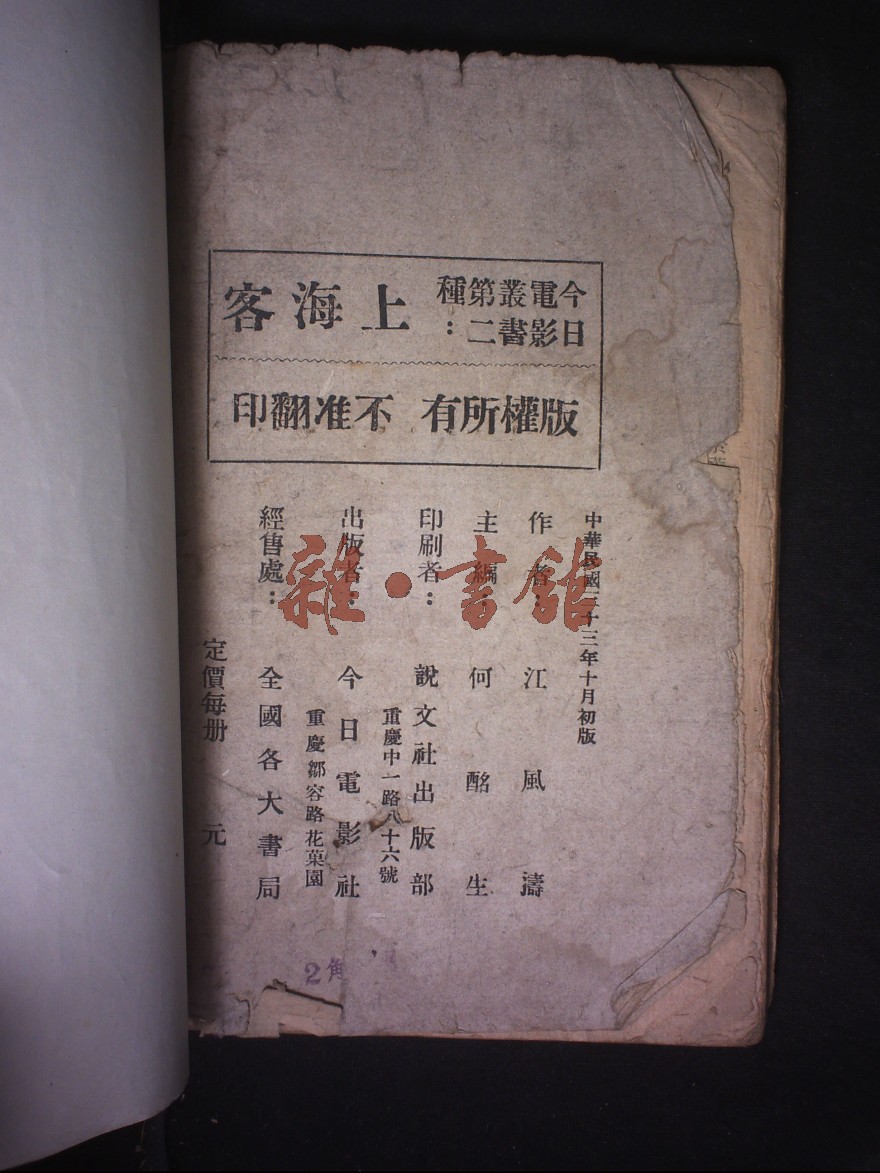 今日電影叢書第二種：
上海客
版權所有 不准翻印
中華民國三十三年十月初版
作者：江風濤
主編：何酩生
印刷者：說文社出版部
重慶中一路八十六號
出版者：今日電影社
重慶鄒容路花菓園
經售處：全國各大書局
定價每册 元
2角
雜·書館